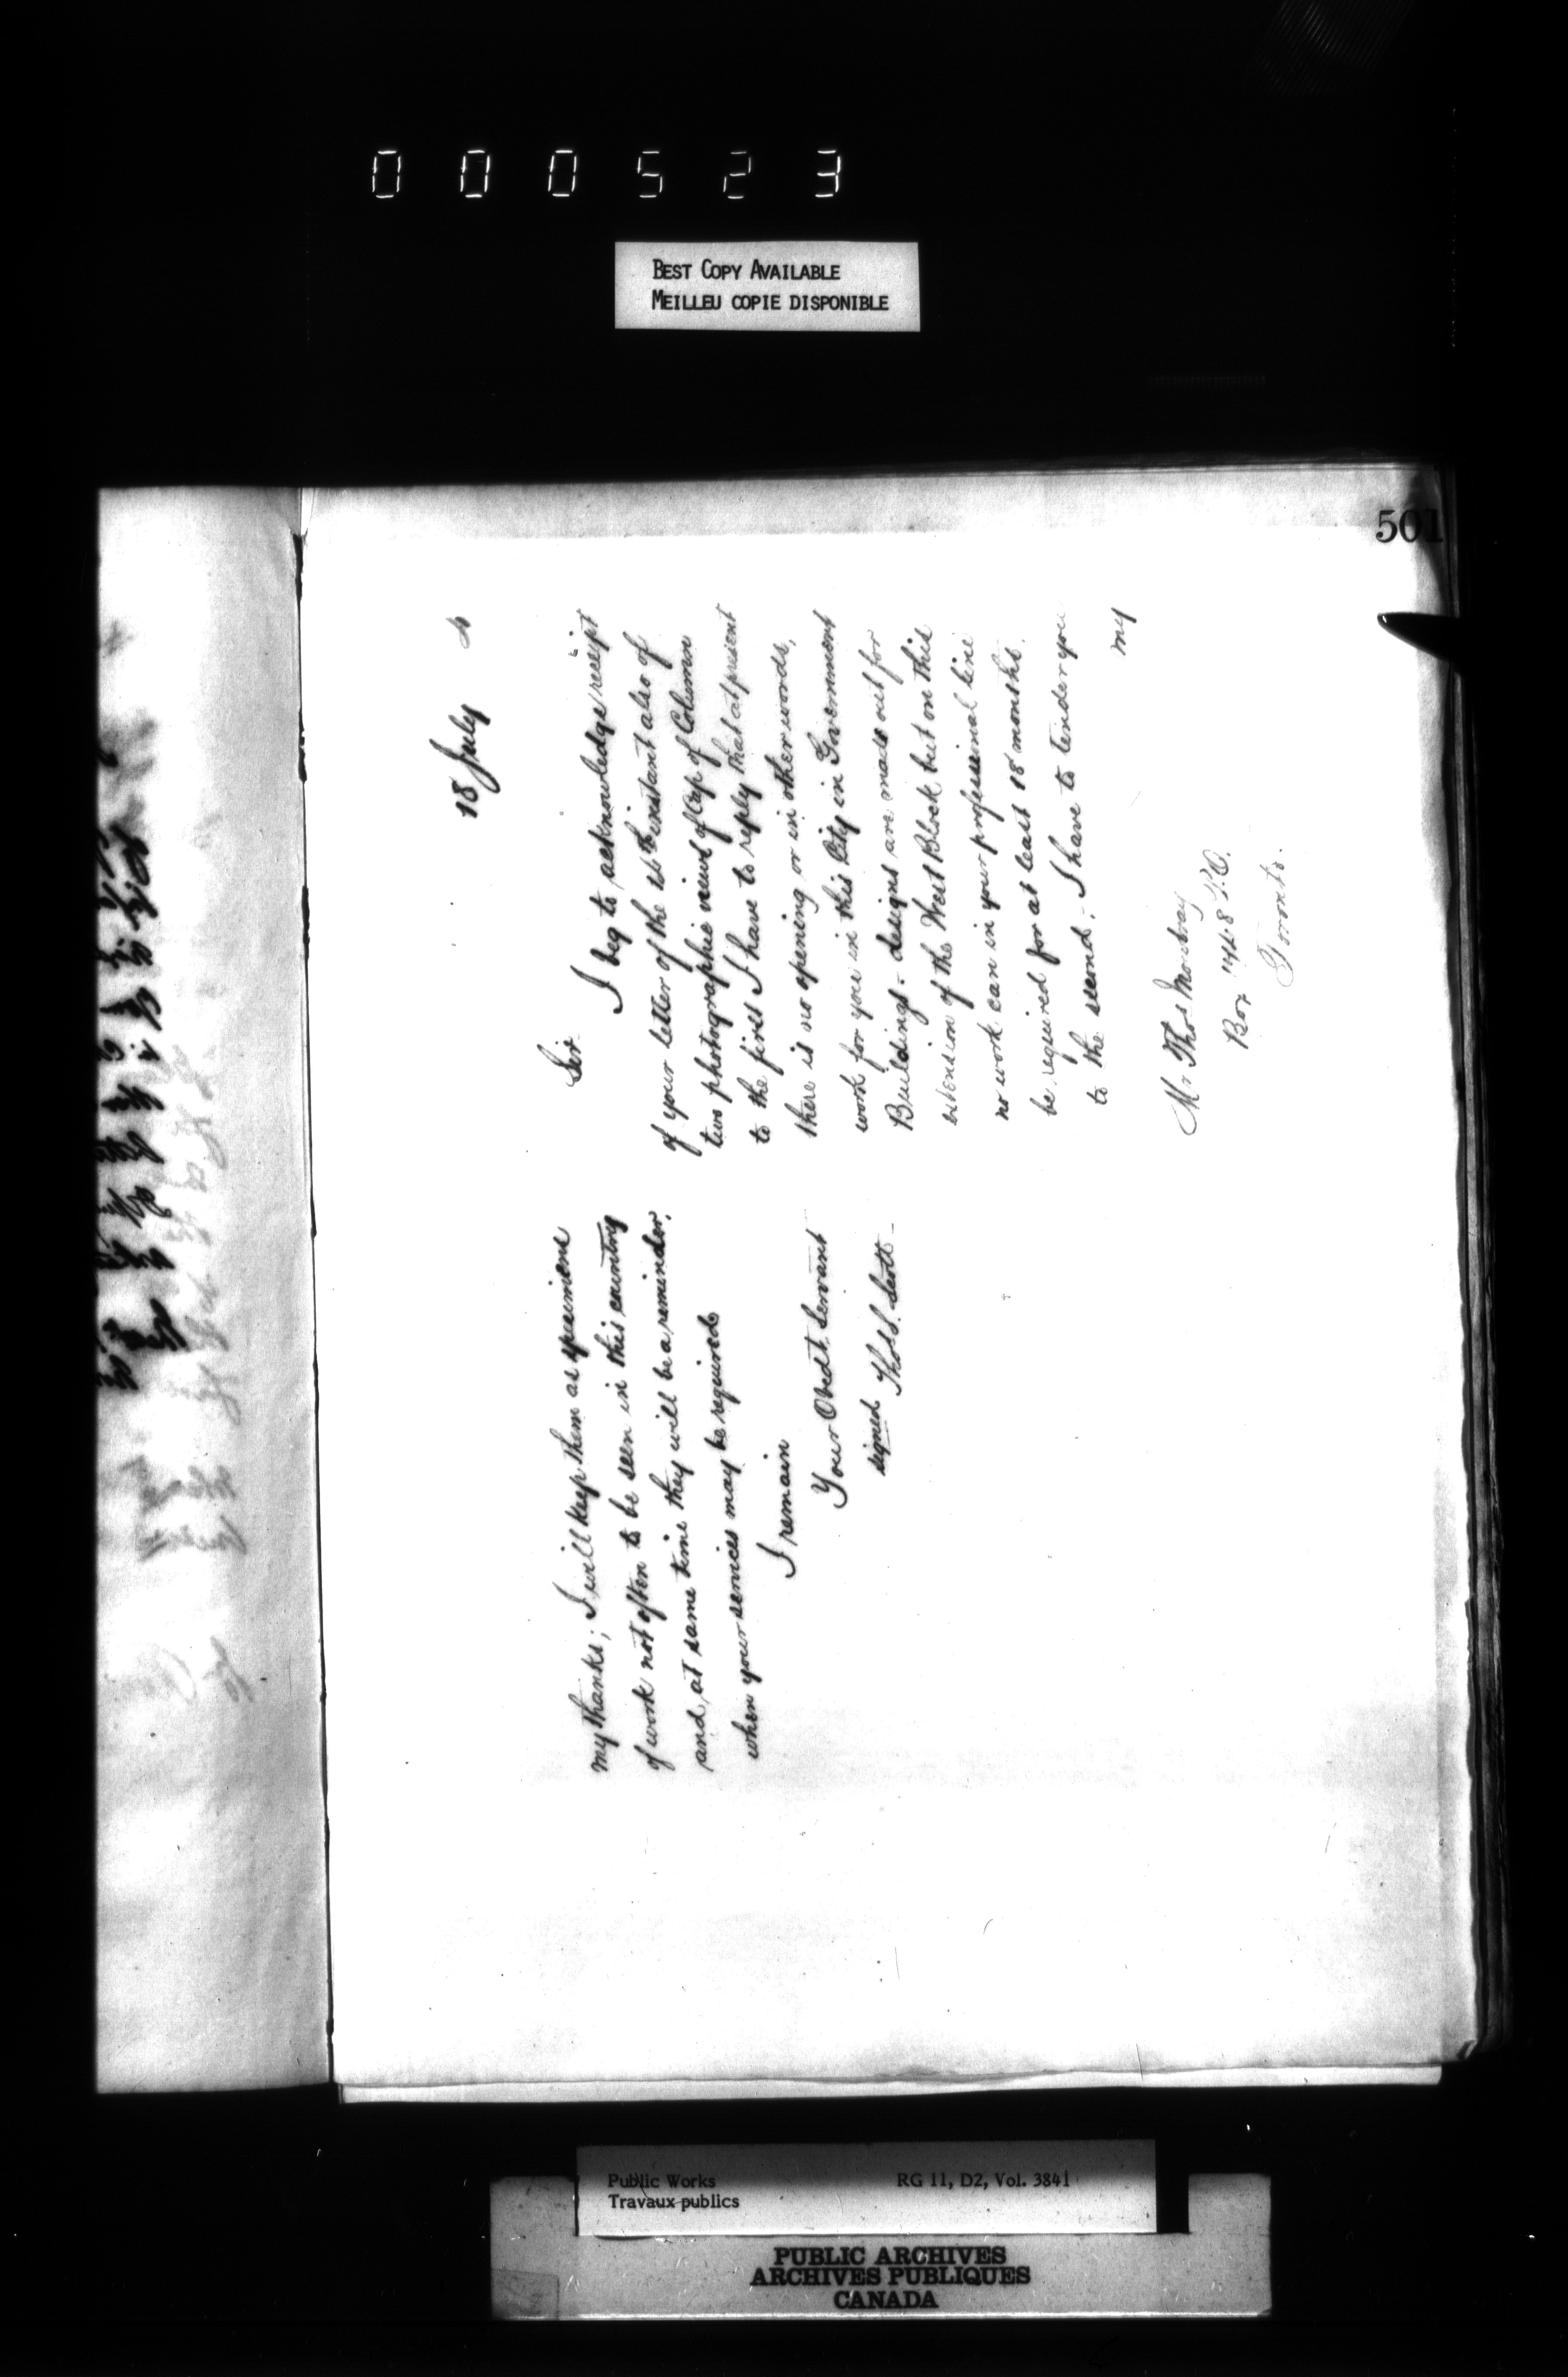 000523
BEST COPY AVAILABLE
MEILLEU COPIE DISPONIBLE
501
18 July
Sir
I beg to acknowledge receipt
of your letter of the instant also of
two photographic views of Cap of Column
to the first I have to reply that at present
there is no opening or in other words,
work for you in this City in Government
Buildings - designs are made out for
extension of the West Block but on this
no work can in your professional line
be required for at least 18 months.
to the second, - I have to tender you
my
Mr Thos Mowbray
Box 748 P.O.
Toronto.
my thanks; I will keep them as specimens
of work not often to be seen in this country
and, at same time they will be a reminder,
when your services may be required
I remain
Your Obedt. Servant
signed Thos S. Scott -
Public Works
Travaux publics
RG 11, D2, Vol. 3841
PUBLIC ARCHIVES
ARCHIVES PUBLIQUES
CANADA